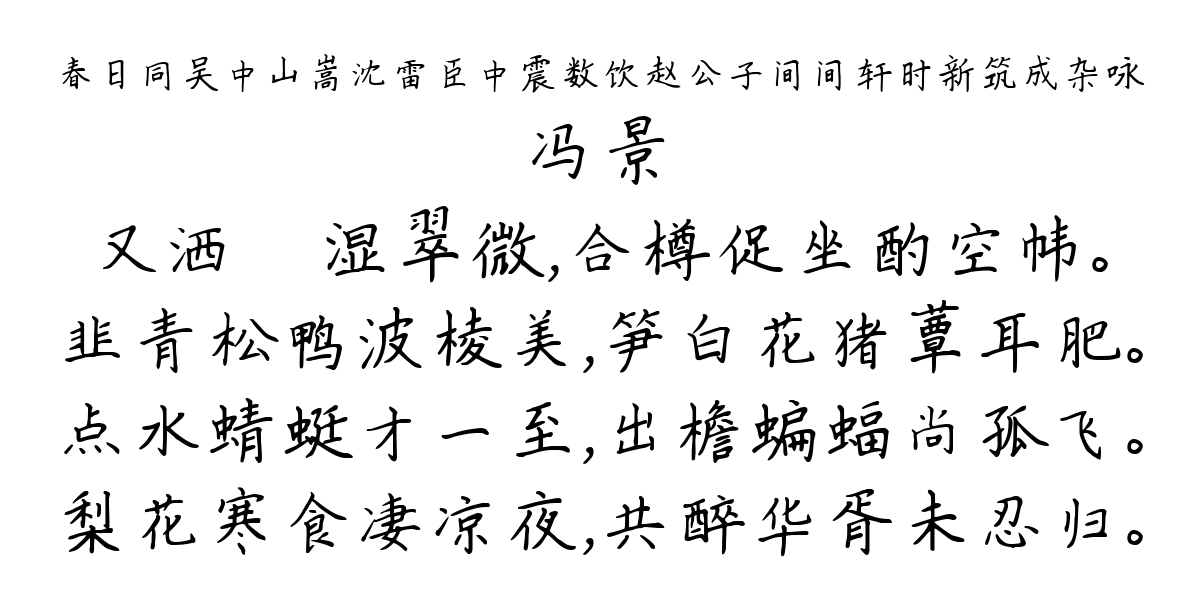 春日同吴中山嵩沈雷臣中震数饮赵公子间间轩时新筑成杂咏
冯景
又洒 湿翠微,合樽促坐酌空帏。
韭青松鸭波棱美,笋白花猪蕈耳肥。
点水蜻蜓才一至,出檐蝙蝠尚孤飞。
梨花寒食凄凉夜,共醉华胥未忍归。